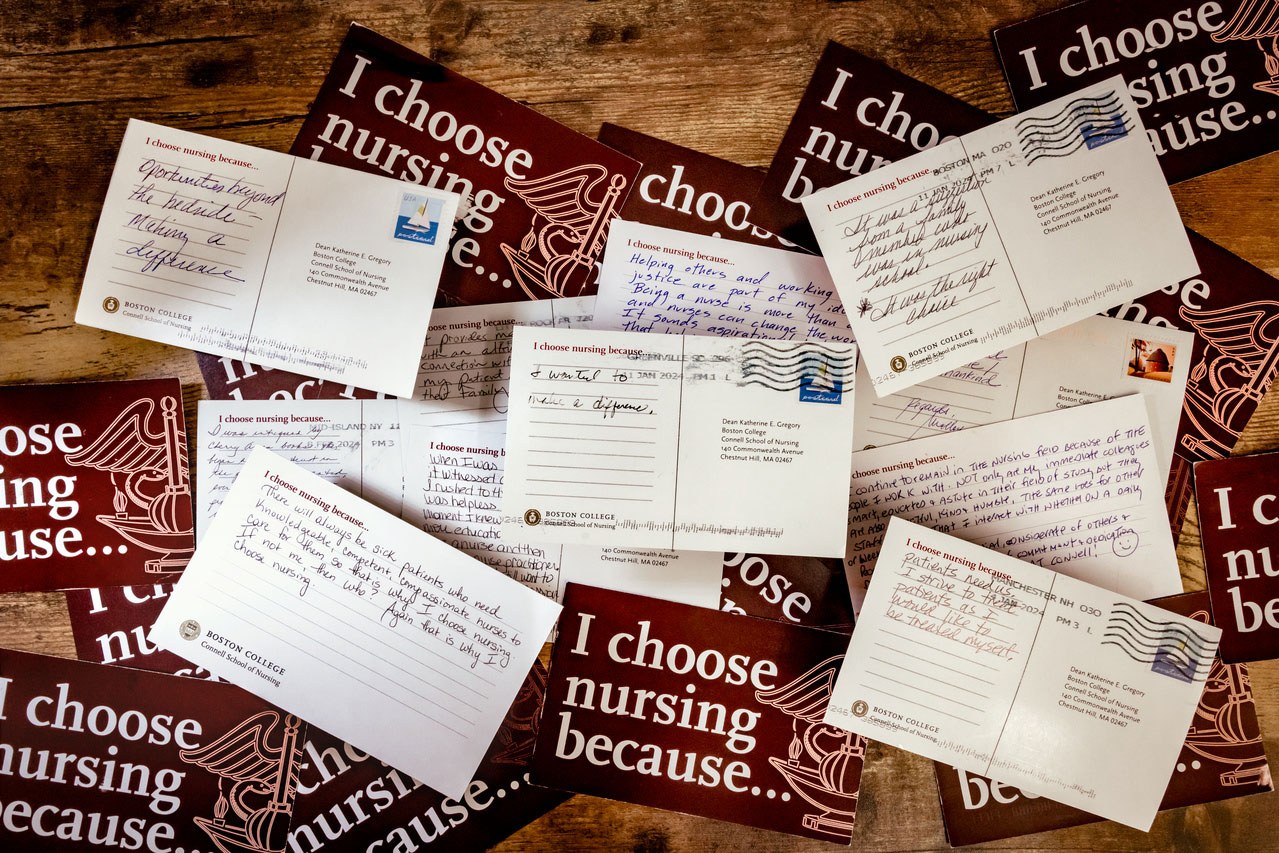 I choose
nursing
I choose nursing because...
oportunities beyond
the bedside –
Making a
difference
USA
postcard
Dean Katherine E. Gregory
Boston College
Connell School of Nursing
140 Commonwealth Avenue
Chestnut Hill, MA 02467
BOSTON COLLEGE
Connell School of Nursing
choo
I cho
nur
b
I choose
sing
ause...
I choose nursing because...
It was a tradition
from a family
member who
was in nursing
school.
* It was the right
choice
BOSTON MA 020
11 JAN 2024 PM 7 L
Dean Katherine E. Gregory
Boston College
Connell School of Nursing
140 Commonwealth Avenue
Chestnut Hill, MA 02467
BOSTON COLLEGE
Connell School of Nursing
I choose nursing because...
Helping others and working
justice are part of my
Being a nurse is more than
and nurses can change the
It sounds aspirational
that
I choose nursing because...
provides me
with an
connection with
my patient
their family
I choose nursing because...
I wanted to
make a difference.
GREENVILLE SC 296
11 JAN 2024 PM 1 L
postcard
Dean Katherine E. Gregory
Boston College
Connell School of Nursing
140 Commonwealth Avenue
Chestnut Hill, MA 02467
BOSTON COLLEGE
Connell School of Nursing
mankind
Regards,
Dean Katherine E. Gregory
Boston College
ose
ing
use...
I choose nursing because...
I was intrigued by
cherry
MID-ISLAND NY 11
2024 PM 3
I choose nursing because...
When I was
I witnessed
I rushed to th
was helpless
moment I knew
more educatio
a nurse and then
nurse practitioner
I want to
140 Commonwealth Avenue
Chestnut Hill, MA 02467
I choose nursing because...
continue to remain in the nursing field because of the
people I work with. Not only are my immediate colleagues
smart, educated & astute in their field of study but they
are also kind & humble. The same goes for other
staff that I interact with whether on a daily
considerate of others &
commitment & dedication
at Connell!
I choose nursing because...
There will always be sick patients who need
knowledgeable, competent compassionate nurses to
care for them, so that's why I choose nursing
If not me, then who? Again that is why I
choose nursing
BOSTON COLLEGE
Connell School of Nursing
I choose nursing because...
Patients need us.
I strive to treat
patients as I
would like to
be treated myself.
MANCHESTER NH 030
JAN 2024 PM 3 L
Dean Katherine E. Gregory
Boston College
Connell School of Nursing
140 Commonwealth Avenue
Chestnut Hill, MA 02467
BOSTON COLLEGE
Connell School of Nursing
I ch
nu
beca
I
nu
oose
I choose
nursing
because...
I choose
nursing
because...
cho
nursing
cause...
beca